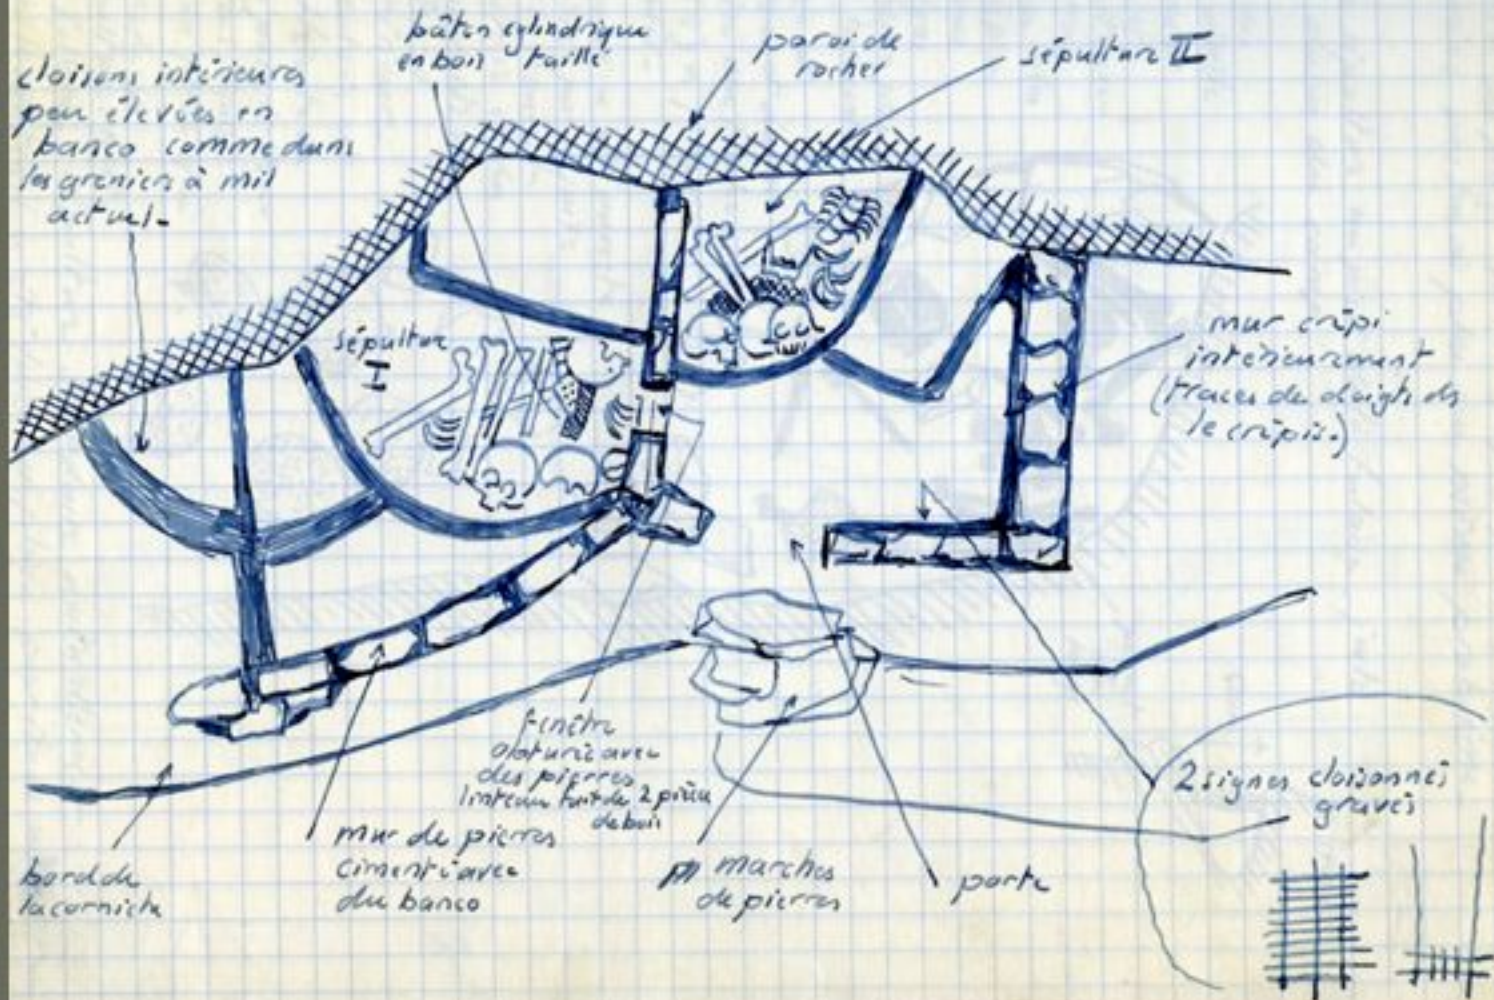 cloisons intérieures
peu élevées en
banco comme dans
les greniers à mil
actuel-
bâton cylindrique
en bois taillé
paroi de
rocher
sépulture II
sépulture
I
mur crépi
intérieurement
(traces de doigts ds
le crépis.)
fenêtre
obturée avec
des pierres
linteau fait de 2 pièces
de bois
2 signes cloisonnés
gravés
bord de
la corniche
mur de pierres
cimenté avec
du banco
marches
de pierres
porte